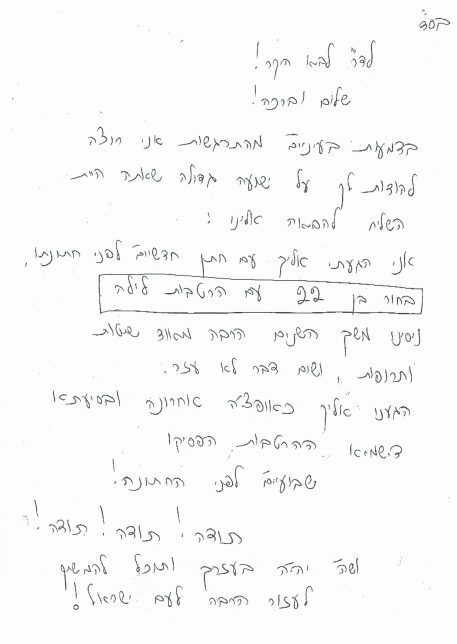 בסד
לדר לבוא הקר!
שלום וברכה!
בדמעות בעיניים מהתרגשות אני רוצה
להודות לך על ישועה גדולה שאתה היית
השליח להבאה אלינו:
אני הגעתי אליך עם חתן חדשיים לפני חתונתו,
בחור בן 22 עם הרטבות לילה
ניסינו משך השנים הרבה מאוד שיטות
ותרופות, ושום דבר לא עזר.
הגענו אליך כאופציה אחרונה ובסיעתא
דשמיא ההרטבות הפסיקו
שבועיים לפני החתונה!
תודה! תודה! תודה!
ושה' יהיה בעזרך ותוכל להמשיך
לעזור הרבה לעם ישראל!